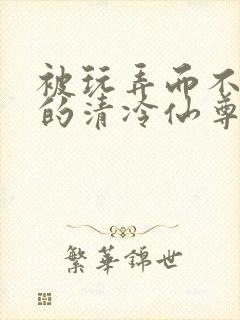 被玩弄而不
的清冷仙尊
繁华锦世